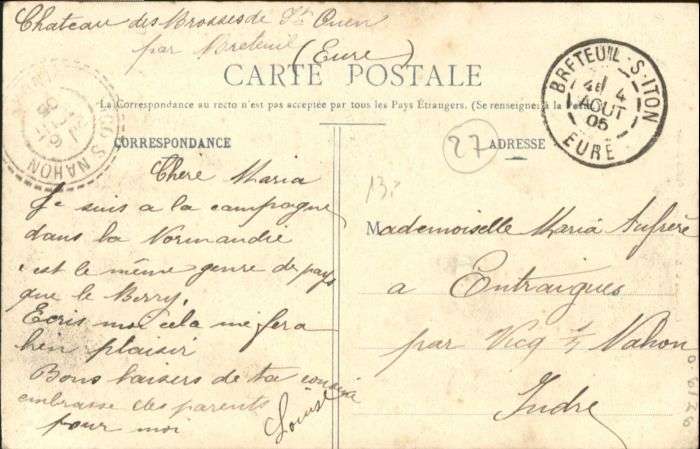 Chateau des Brosses de St Ouen
par Breteuil (Eure)
CARTE POSTALE
La Correspondance au recto n'est pas acceptée par tous les Pays Étrangers. (Se renseigner à la
BRETEUIL-S-ITON
4
AOUT
05
EURE
S NAHON
CORRESPONDANCE
27
ADRESSE
13
Chère Maria
Je suis a la campagne
dans la Normandie
c'est le même genre de pays
que le Berry,
Ecris moi cela me fera
bien plaisir
Bons baisers de ta cousine
embrasse des parents
pour moi
Louise
Mademoiselle Maria Aufrère
a Entraigues
par Vicq s/ Nahon
Indre